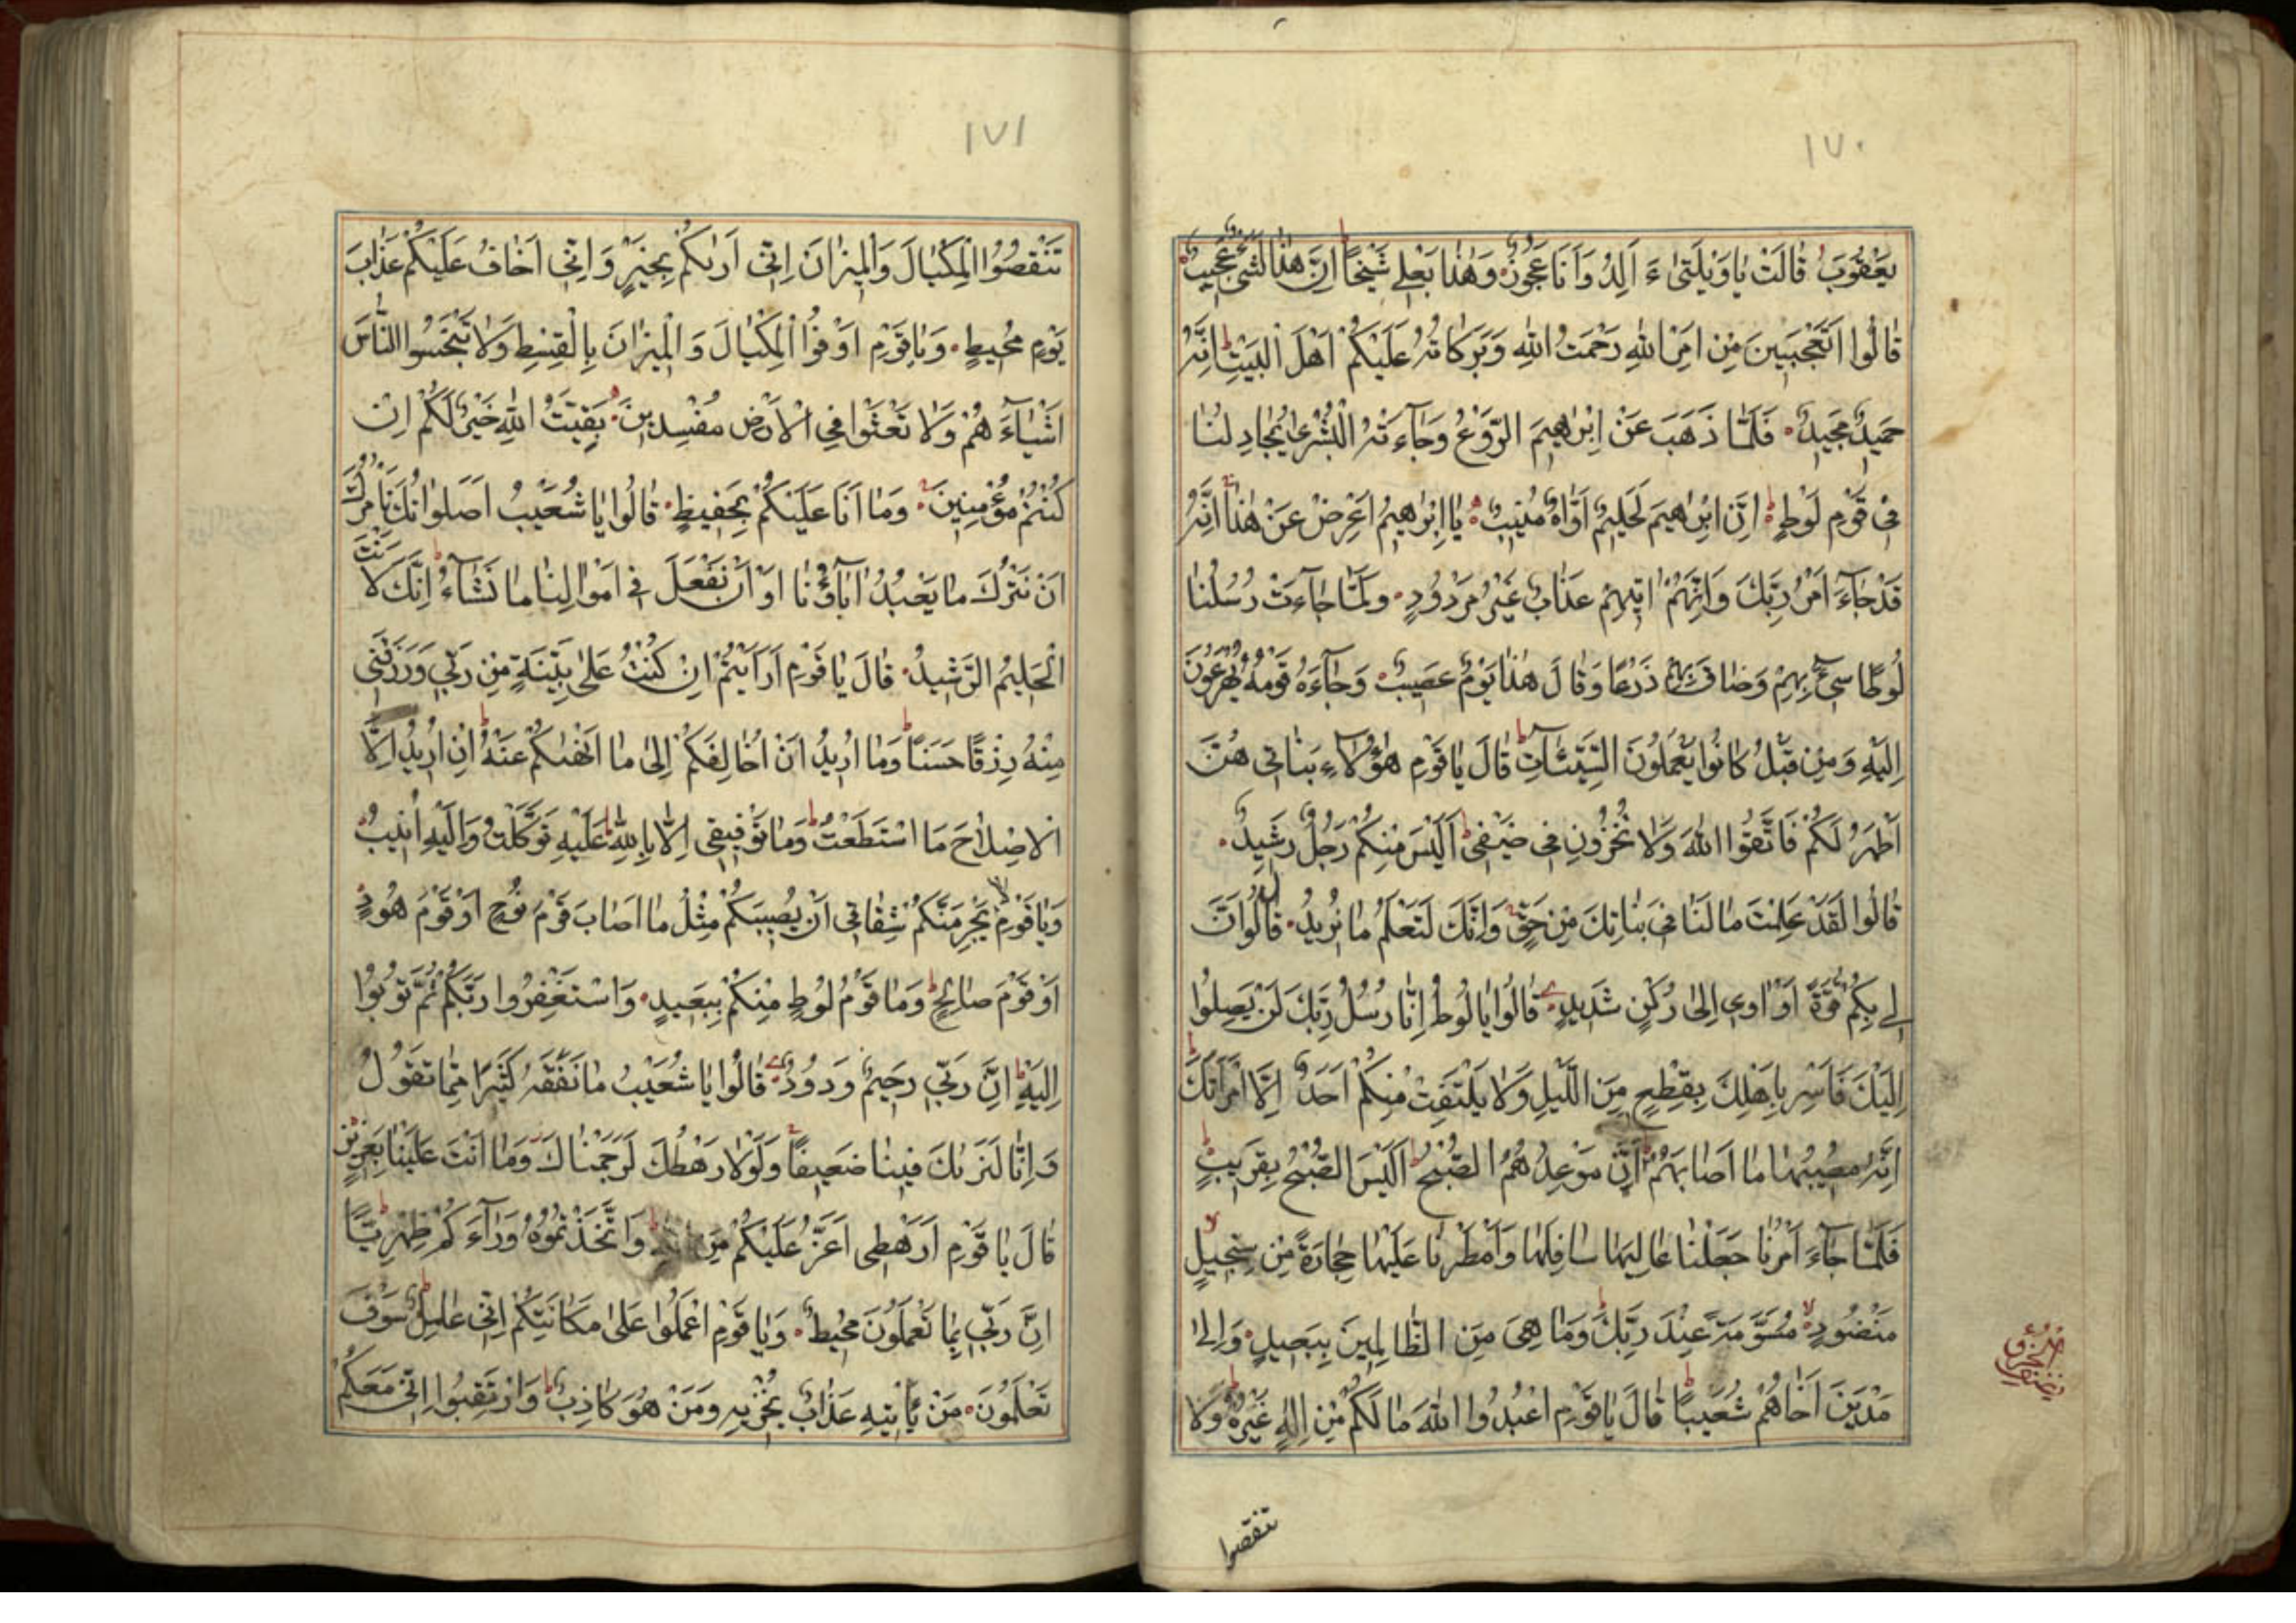 ١٧٠
يَعْقُوبَ قَالَتْ يَاوَيْلَتَىٰ ءَ اَلِدُ وَاَنَا عَجُوزٌ وَهٰذَا بَعْلِي شَيْخًا اِنَّ هٰذَا لَشَيْءٌ عَجِيبٌ
قَالُوا اَتَعْجَبِينَ مِنْ اَمْرِ اللّٰهِ رَحْمَتُ اللّٰهِ وَبَرَكَاتُهُ عَلَيْكُمْ اَهْلَ الْبَيْتِ اِنَّهُ
حَمِيدٌ مَجِيدٌ فَلَمَّا ذَهَبَ عَنْ اِبْرٰهِيمَ الرَّوْعُ وَجَآءَتْهُ الْبُشْرٰى يُجَادِلُنَا
فِي قَوْمِ لُوطٍ اِنَّ اِبْرٰهِيمَ لَحَلِيمٌ اَوَّاهٌ مُنِيبٌ يَا اِبْرٰهِيمُ اَعْرِضْ عَنْ هٰذَا اِنَّهُ
قَدْ جَآءَ اَمْرُ رَبِّكَ وَاِنَّهُمْ اٰتِيهِمْ عَذَابٌ غَيْرُ مَرْدُودٍ وَلَمَّا جَآءَتْ رُسُلُنَا
لُوطًا سِيءَ بِهِمْ وَضَاقَ بِهِمْ ذَرْعًا وَقَالَ هٰذَا يَوْمٌ عَصِيبٌ وَجَآءَهُ قَوْمُهُ يُهْرَعُونَ
اِلَيْهِ وَمِنْ قَبْلُ كَانُوا يَعْمَلُونَ السَّيِّئَاتِ قَالَ يَا قَوْمِ هٰؤُلَآءِ بَنَاتِي هُنَّ
اَطْهَرُ لَكُمْ فَاتَّقُوا اللّٰهَ وَلَا تُخْزُونِ فِي ضَيْفِي اَلَيْسَ مِنْكُمْ رَجُلٌ رَشِيدٌ
قَالُوا لَقَدْ عَلِمْتَ مَا لَنَا فِي بَنَاتِكَ مِنْ حَقٍّ وَاِنَّكَ لَتَعْلَمُ مَا نُرِيدُ قَالَ لَوْ اَنَّ
لِي بِكُمْ قُوَّةً اَوْ اٰوِي اِلَىٰ رُكْنٍ شَدِيدٍ قَالُوا يَا لُوطُ اِنَّا رُسُلُ رَبِّكَ لَنْ يَصِلُوا
اِلَيْكَ فَاَسْرِ بِاَهْلِكَ بِقِطْعٍ مِنَ اللَّيْلِ وَلَا يَلْتَفِتْ مِنْكُمْ اَحَدٌ اِلَّا امْرَاَتَكَ
اِنَّهُ مُصِيبُهَا مَا اَصَابَهُمْ اِنَّ مَوْعِدَهُمُ الصُّبْحُ اَلَيْسَ الصُّبْحُ بِقَرِيبٍ
فَلَمَّا جَآءَ اَمْرُنَا جَعَلْنَا عَالِيَهَا سَافِلَهَا وَاَمْطَرْنَا عَلَيْهَا حِجَارَةً مِنْ سِجِّيلٍ
مَنْضُودٍ مُسَوَّمَةً عِنْدَ رَبِّكَ وَمَا هِيَ مِنَ الظَّالِمِينَ بِبَعِيدٍ وَاِلَىٰ
مَدْيَنَ اَخَاهُمْ شُعَيْبًا قَالَ يَا قَوْمِ اعْبُدُوا اللّٰهَ مَا لَكُمْ مِنْ اِلٰهٍ غَيْرُهُ وَلَا
تنقصوا
١٧١
تَنْقُصُوا الْمِكْيَالَ وَالْمِيزَانَ اِنِّي اَرٰىكُمْ بِخَيْرٍ وَاِنِّي اَخَافُ عَلَيْكُمْ عَذَابَ
يَوْمٍ مُحِيطٍ وَيَا قَوْمِ اَوْفُوا الْمِكْيَالَ وَالْمِيزَانَ بِالْقِسْطِ وَلَا تَبْخَسُوا النَّاسَ
اَشْيَآءَهُمْ وَلَا تَعْثَوْا فِي الْاَرْضِ مُفْسِدِينَ بَقِيَّتُ اللّٰهِ خَيْرٌ لَكُمْ اِنْ
كُنْتُمْ مُؤْمِنِينَ وَمَا اَنَا عَلَيْكُمْ بِحَفِيظٍ قَالُوا يَا شُعَيْبُ اَصَلَوَاتُكَ تَاْمُرُكَ
اَنْ نَتْرُكَ مَا يَعْبُدُ اٰبَآؤُنَا اَوْ اَنْ نَفْعَلَ فِي اَمْوَالِنَا مَا نَشَآءُ اِنَّكَ لَاَنْتَ
الْحَلِيمُ الرَّشِيدُ قَالَ يَا قَوْمِ اَرَاَيْتُمْ اِنْ كُنْتُ عَلَىٰ بَيِّنَةٍ مِنْ رَبِّي وَرَزَقَنِي
مِنْهُ رِزْقًا حَسَنًا وَمَا اُرِيدُ اَنْ اُخَالِفَكُمْ اِلَىٰ مَا اَنْهٰىكُمْ عَنْهُ اِنْ اُرِيدُ اِلَّا
الْاِصْلَاحَ مَا اسْتَطَعْتُ وَمَا تَوْفِيقِي اِلَّا بِاللّٰهِ عَلَيْهِ تَوَكَّلْتُ وَاِلَيْهِ اُنِيبُ
وَيَا قَوْمِ لَا يَجْرِمَنَّكُمْ شِقَاقِي اَنْ يُصِيبَكُمْ مِثْلُ مَا اَصَابَ قَوْمَ نُوحٍ اَوْ قَوْمَ هُودٍ
اَوْ قَوْمَ صَالِحٍ وَمَا قَوْمُ لُوطٍ مِنْكُمْ بِبَعِيدٍ وَاسْتَغْفِرُوا رَبَّكُمْ ثُمَّ تُوبُوا
اِلَيْهِ اِنَّ رَبِّي رَحِيمٌ وَدُودٌ قَالُوا يَا شُعَيْبُ مَا نَفْقَهُ كَثِيرًا مِمَّا تَقُولُ
وَاِنَّا لَنَرٰىكَ فِينَا ضَعِيفًا وَلَوْلَا رَهْطُكَ لَرَجَمْنَاكَ وَمَا اَنْتَ عَلَيْنَا بِعَزِيزٍ
قَالَ يَا قَوْمِ اَرَهْطِي اَعَزُّ عَلَيْكُمْ مِنَ وَاتَّخَذْتُمُوهُ وَرَآءَكُمْ ظِهْرِيًّا
اِنَّ رَبِّي بِمَا تَعْمَلُونَ مُحِيطٌ وَيَا قَوْمِ اعْمَلُوا عَلَىٰ مَكَانَتِكُمْ اِنِّي عَامِلٌ سَوْفَ
تَعْلَمُونَ مَنْ يَاْتِيهِ عَذَابٌ يُخْزِيهِ وَمَنْ هُوَ كَاذِبٌ وَارْتَقِبُوا اِنِّي مَعَكُمْ